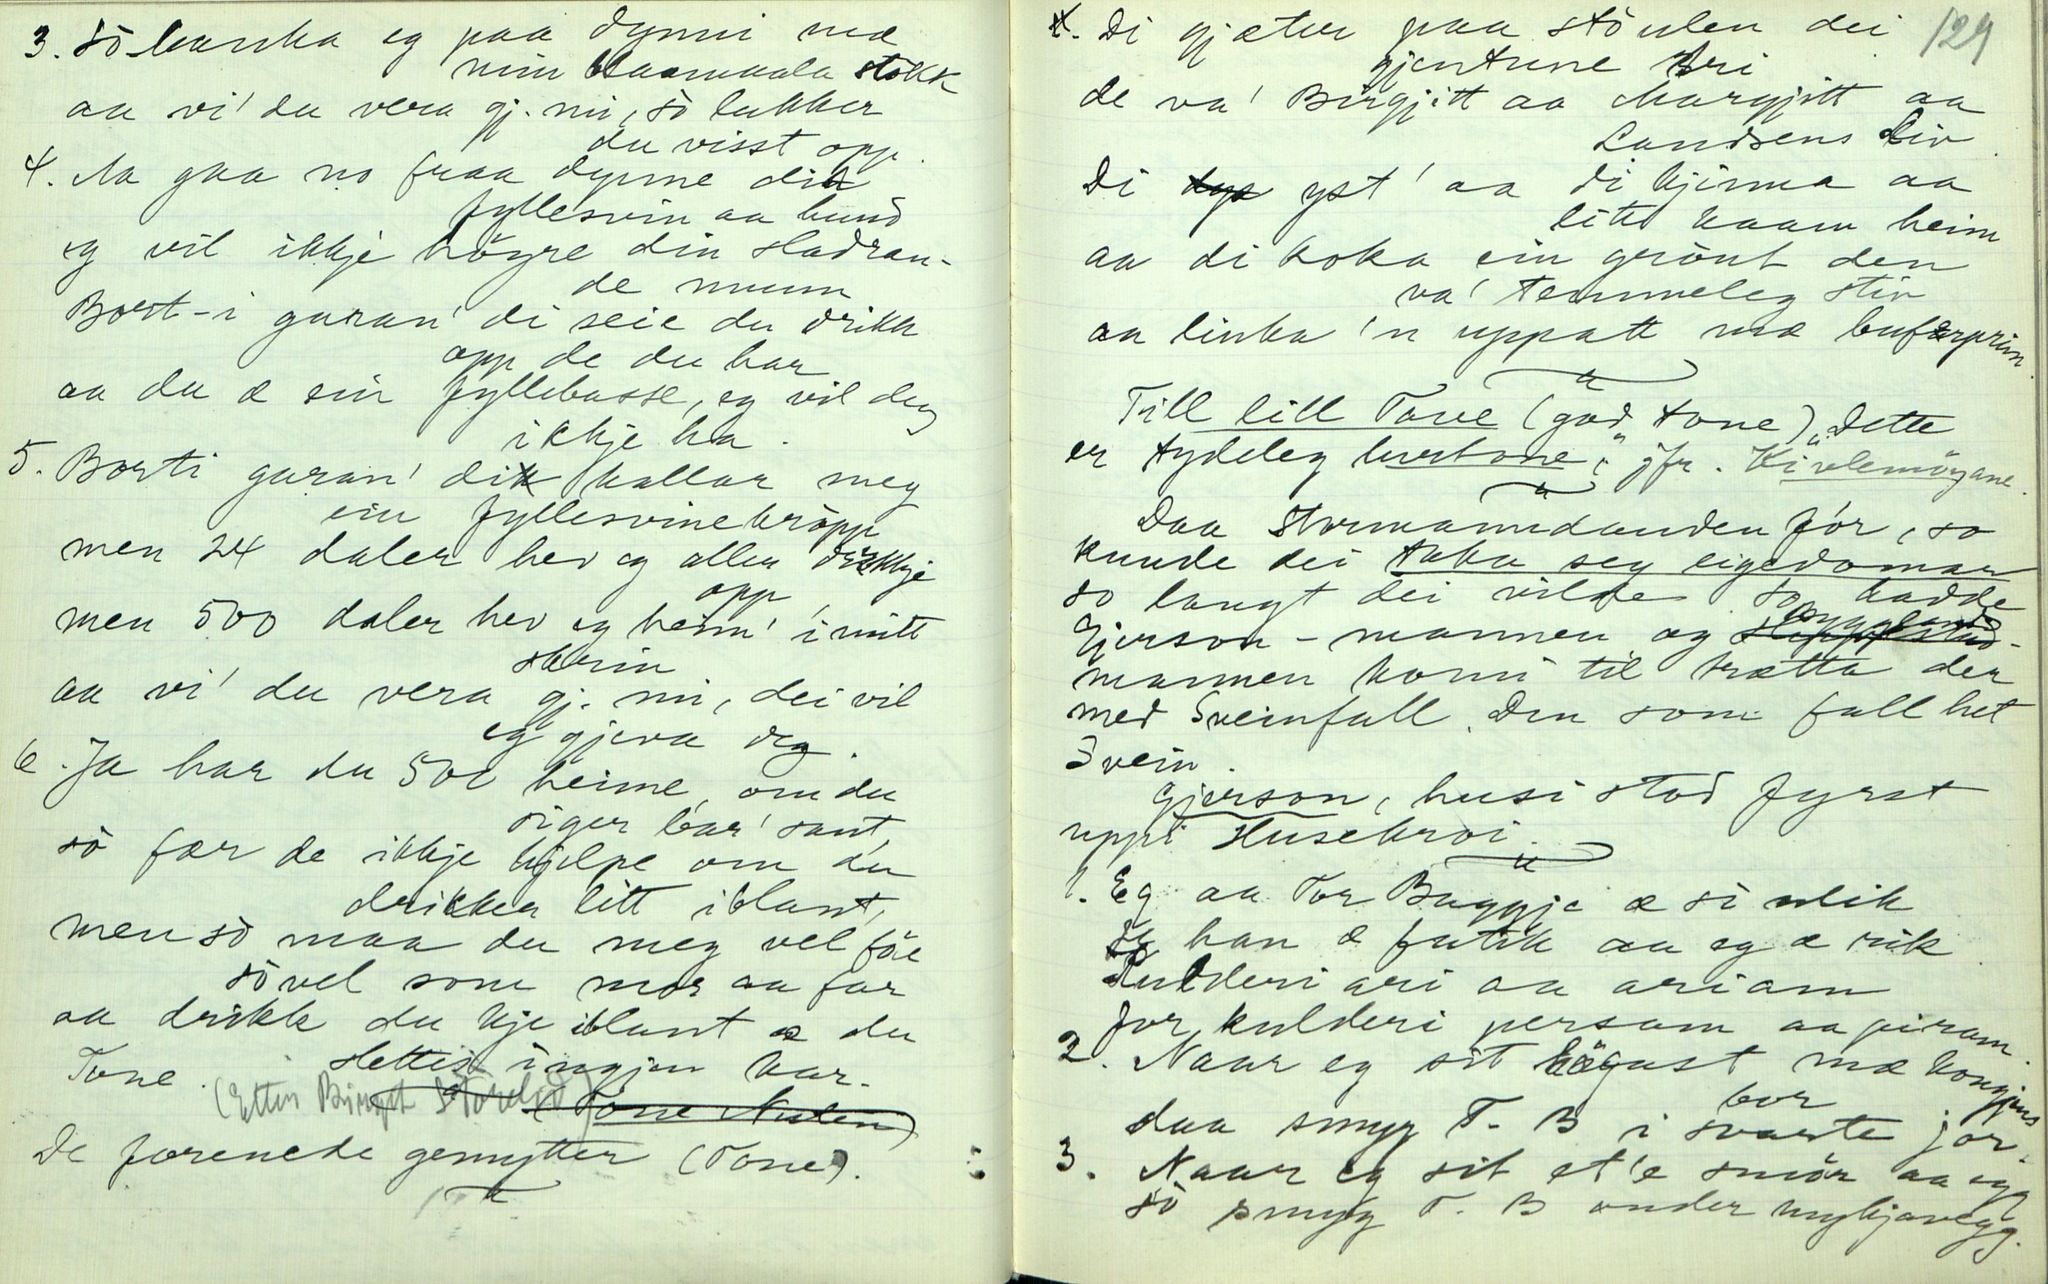 3. Sö banka eg paa dynni mæ
min blaamaala stokk
aa vi' du vera gj. mi, sö lukker
du visst opp.
4. Aa gaa no fraa dynne di
fyllesvin aa hund
eg vil ikkje högre din sladran-
de munn
Bort-i garan' di seie du drikk
opp de du har
aa du æ ein fyllebasse, eg vil deg
ikkje ha.
5. Borti garan' di kallar meg
ein fyllesvinekropp
men 24 daler hev eg aller drikkje
opp
men 500 daler hev eg heim' i mitt
skrin
aa vi' du vera gj. mi, dei vil
eg gjeva deg.
6. Ja har du 500 heime, om du
siger bar' sant,
sö fær de ikkje hjelpe om du
drikker litt iblant,
men sö maa du meg vel föe
sövel som mor aa far
aa drikk du kje iblant æ du
slettis ingjen kar.
Tone. (Etter Birgit Störelid)
(Tone Nuten)
De forenede gemytter (Tone).
129
4. Di gjæter paa stöulen dei
gjentune tri
de va' Birgjitt aa Margjitt aa
Landsens Liv.
Di yst' aa di kjinna aa
lite kaam heim
aa di koka ein graut den
va' temmeleg stiv
aa linka 'n uppatt mæ bufarprim.
Till lill Tove (god tone) "Dette
er tydeleg lurtone", jfr. Kivlemöyane.
Daa Stormanndauden för, so
kunde dei taka seg eigedomar
so langt dei vilde. So hadde
Gjerson-mannen og Byggland-
mannen komi til trætta der
med Sveinfall. Den som fall het
Svein.
Gjerson, husi stod fyrst
uppi Husekroi.
1. Eg aa Tor Buggje æ si ulik
han æ fatik aa eg æ rik
Kulderi ari aa ariam
for kulderi persam aa piram.
2. Naar eg sit högast mæ kongjens
bor
daa smyg T. B i svarte jor.
3. Naar eg sit et'e smör aa egg
sö smyg T. B under mykjavegg.